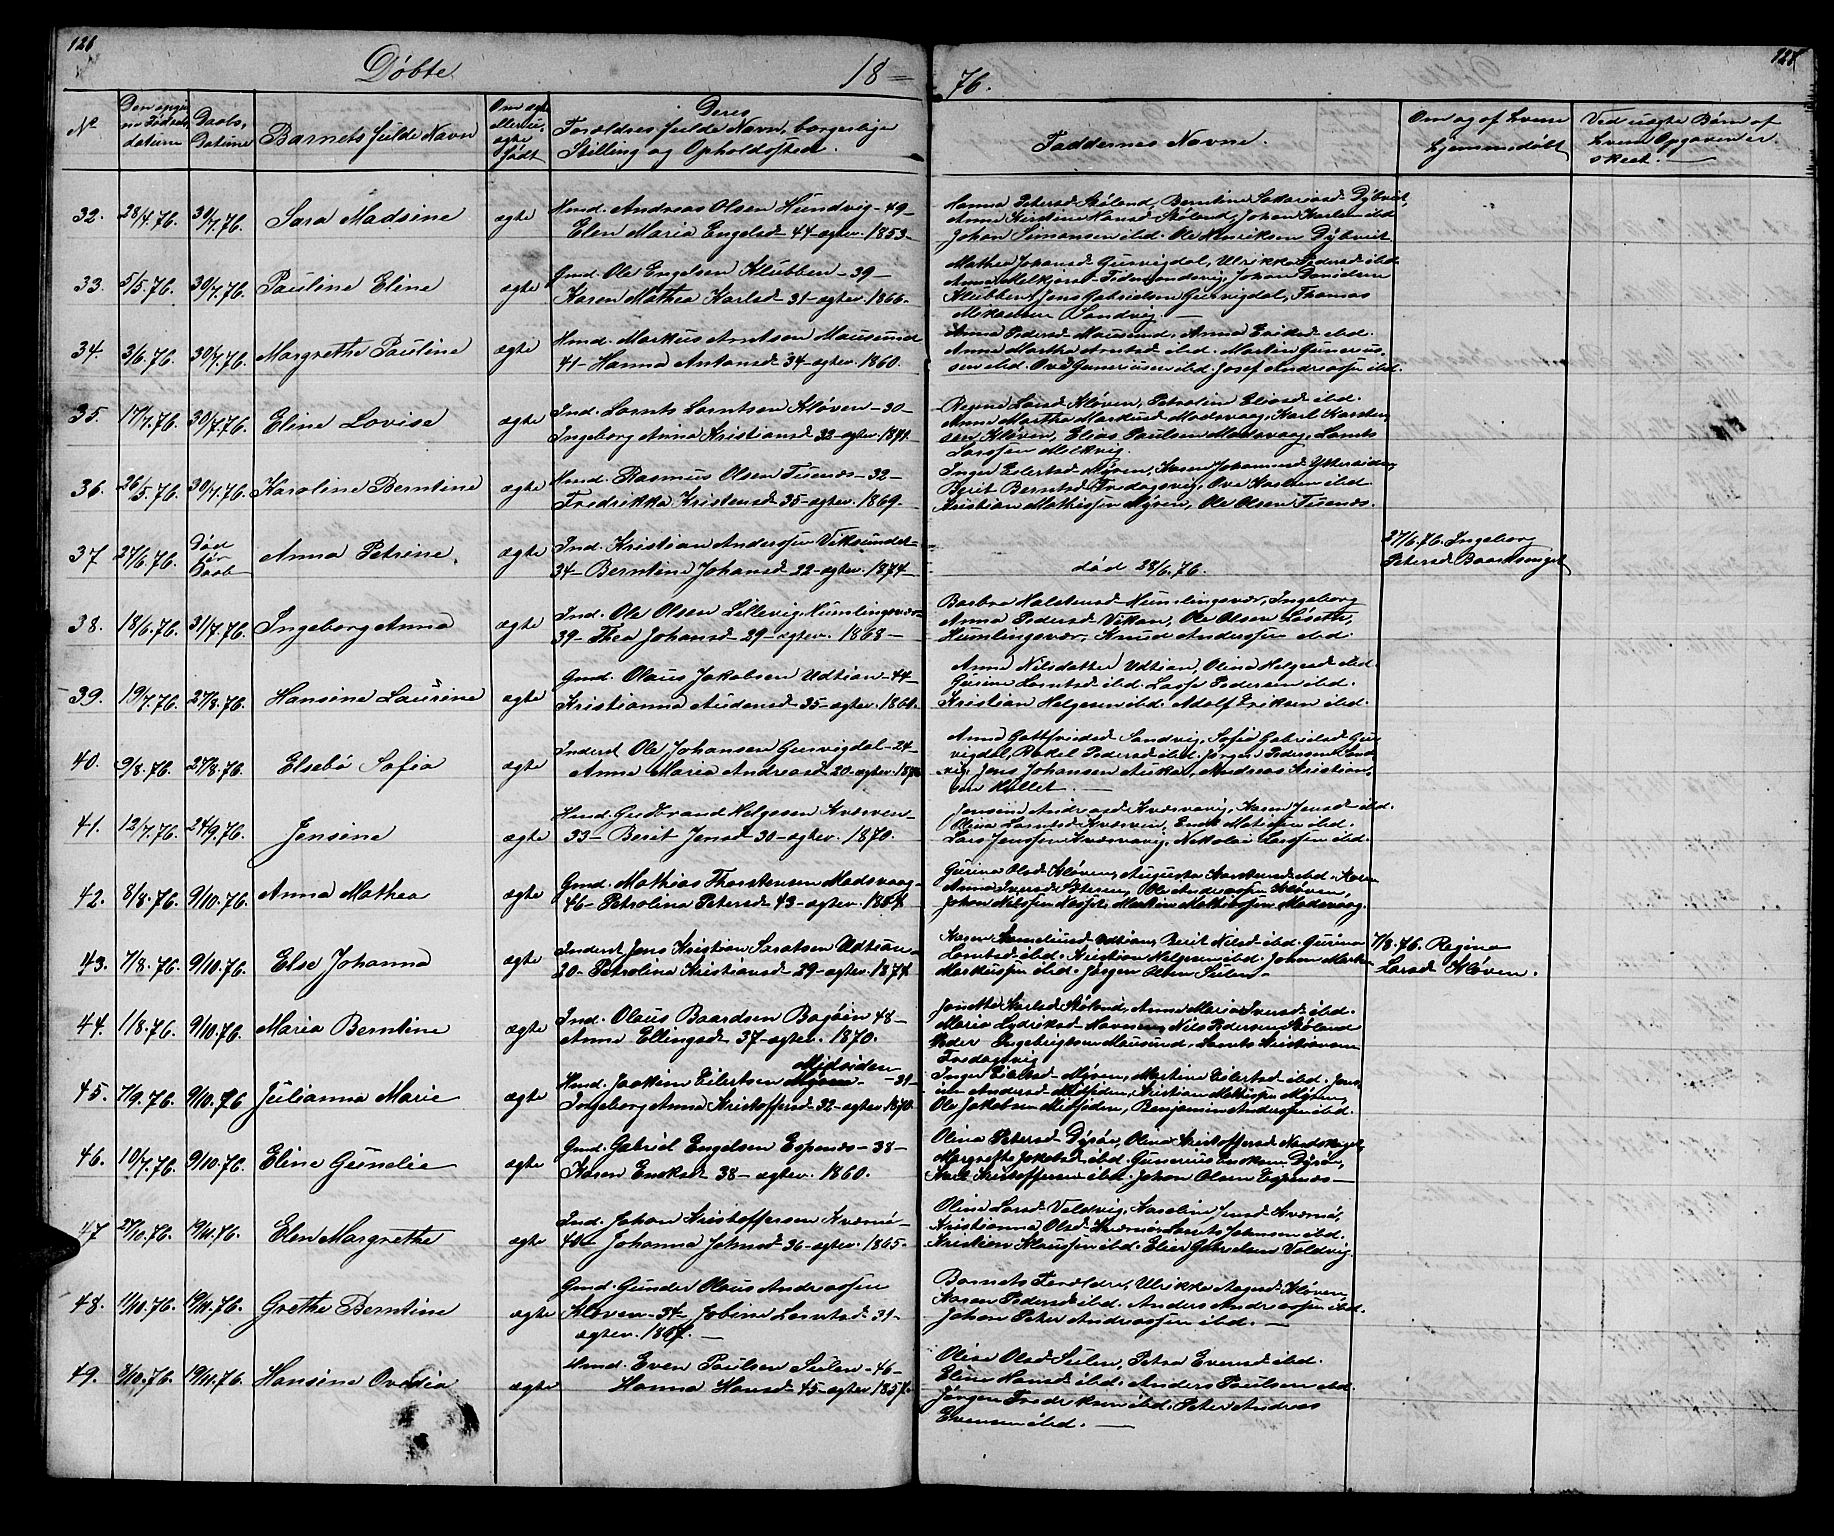 126
Døbte
18=
76.
128
No
Den opgivne Fødselsdatum
Daabs-Datum
Barnets fulde Navn
Om ægte eller uægte født
Deres Forældres fulde Navn, borgerlige Stilling og Opholdssted.
Faddernes Navne.
Om og af hvem hjemmedøbt
Ved uægte Børn af hvem Opgaven er skeet.
32. 28/4.76. 30/7.76. Sara Madsine ægte. Hmd. Andreas Olsen Hundvig-49-
Elen Maria Engelsd-44-ægtev. 1853-
Hanna Petersd Skøland, Berntine Sakariasd Dybvik,
Anne Kirstine Hansd Skøland, Johan Karlsen ibd
Johan Simonsen ibd. Ole Henriksen Dybvik
33. 5/5.76. 30/7.76. Pauline Eline ægte Gmd. Ole Engelsen Klubben-39-
Karen Mathea Karlsd-31-ægtev. 1866.
Mathea Johansd Gursvigdal, Ulrikke Pedersd ibd
Anne Melkjorsd Tidemandsvig, Johan Danielsen
Klubben, Jens Gabrielsen Gursvigdal, Thomas
Mikalsen Sandvig-
34. 3/6.76. 30/7.76. Margrethe Pauline ægte Hmd. Markus Arntsen Mausund
41-Hanna Antonsd-34-ægtev. 1860.
Anna Pedersd Mausund, Anna Eriksd ibd.
Anne Martha Arntsd ibd. Martin Gunerius-
sen ibd. Ove Guneriusen ibd. Josef Andreassen ibd.
35. 17/7.76. 30/7.76. Eline Lovise ægte Ind. Lornts Lorntsen Kløven-30-
Ingeborg Anna Kristiansd 33-ægtev. 1871.
Regine Larsd Kløven, Petroline Eliasd ibd.
Anne Martha Markusd Madsvaag, Karl Karsten-
sen Kløven, Elias Paulsen Madsvaag, Lornts
Larssen Melkvig.
36. 26/5.76. 30/7.76. Karoline Berntine ægte Hmd. Rasmus Olsen Tusenæs-32-
Fredrikka Kristensd-35-ægtev. 1869.
Inger Eilertsd Myren, Karen Johannesd
Berit Berntsd Fredagsvig, Ove ibd
Kristian Mathissen Myren, Ole Olsen Tusenæs.
37 27/6.76. Død før Daab Anna Petrine. ægte Ind. Kristian Anderssen Viksundet-
34-Berntine Johansd-22-ægtev. 1874-
død 28/6.76.
27/6.76. Ingeborg
Petersd
38. 18/6.76. 31/7.76. Ingeborg Anna ægte Ind. Ole Olsen Lillevig, Humlingsvær-
39-Thea Johansd-29-ægtev. 1868-
Barbra Halstensd Humlingsvær, Ingeborg
Anna Pedersd Vikan, Ole Olsen
Humlingsvær, Knud Anderssen ibd.
39. 19/7.76. 27/8.76. Hansine Laurine ægte Gmd. Olaus Jakobsen Udtian-44-
Kristianna Audensd-35-ægtev. 1861.
Anne Nilsdatter Udtian, Oline Helgesd ibd.
Gurine Lorntsd ibd. Lasse Pedersen ibd.
Kristian Helgesen ibd. Adolf Eriksen ibd.
40. 9/8.76. 27/8.76. Elsebö Sofia ægte Inderst Ole Johansen Gursvigdal-24-
Anne Maria Andreasd-20-ægtev. 1876
Anne Gottfridsd Sandvig, Sofie Gabrielsd Gurs-
vigdal, Rakel Pedersd ibd. Jørgen Pedersen Sand-
vig, Jens Johansen Auka, Andreas Kristian-
sen Hallet.-
41. 12/7.76. 24/9.76. Jensine ægte Hmd. Gudbrand Helgesen Kværven-
33-Berit Jensd-30-ægtev. 1870.
Jensine Andreasd Kværsvaag, Karen Jensd ibd.
Oline Lorntsd Kværven, Enok Matisen ibd.
Lars Jenssen Kværsvaag, Nikolai Larssen ibd.
42. 8/8.76. 9/10.76. Anna Mathea ægte Gmd. Mathias Thorstensen Madsvaag-
46-Petrolina Petersd-43-ægtev. 1854.
Gurine Olsd Kløven, Augusta Karstensd ibd.
Anna Iversd, Ole Andreassen Kløven,
Johan Nilssen, Martin Mathiassen Madsvaag.
43. 7/8.76. 9/10.76. Else Johanna ægte Inderst Jens Kristian Udtian-
20-Petrolina Kristiansd-29-ægtev. 1874.
Karen Udtian, Berit Nilsd ibd. Gurine
Lorntsd ibd. Kristian Helgesen ibd. Johan
Markussen ibd. Jørgen Olsen Sulen-
7/8.76. Regina
Larsd Kløven.
44. 1/8.76. 9/10.76. Maria Berntine ægte Ind. Olaus Baardsen Bogøin 48-
Anne Ellingsd-37-ægtev. 1870.
Jonette Karlsd Skøland, Anne Maria Iversd ibd.
Maria, Nils Pedersen Skøland
Peder Ingebrigtsen Mausund, Lornts Kristiansen
Fredagsvig
45. 7/9.76. 9/10.76 Julianna Marie ægte Hmd. Joakim Eilertsen Myren Midsiden-31-
Ingeborg Anna Kristoffersd-32-ægtev. 1870.
Inger Eilertsd Myren, Martine Eilertsd ibd.
Andersd Midsiden, Kristian Mathissen Myren,
Ole Jakobsen Midsiden, Benjamin Anderssen ibd.
46. 10/7.76. 9/10.76. Eline Gunelie ægte Gmd. Gabriel Engelsen Espenæs-38-
Karen Enoksd-38-ægtev. 1860.
Olina Petersd Dyrøn, Olina Kristoffersd Nordskaget,
Margrethe Jakobsd ibd. Gunerius Enoksen Dyrøn,
Karl Kristoffersen ibd. Johan Olsen Espenæs-
47 27/10.76. 19/11.76. Elen Margrethe ægte Ind. Johan Kristoffersen Kværnø-
40-Johanna Johnsd-36-ægtev. 1865.
Oline Larsd Veldvig, Karoline Jensd Kværnø,
Kristianna Olsd Kværnø, Lornts Johnsen ibd.
Kristian Klaussen ibd. Elias Gabrielsen Veldvig.
48. 11/10.76. 19/11.76. Grethe Berntine ægte Gmd. Gunder Olaus Andreassen
Kløven-34-Jobine Lorntsd-31-
ægtev. 1867.-
Barnets Forældre, Ulrikke Aagesd Kløven,
Karen Pedersd ibd. Anders Andreassen ibd.
Johan Peter Andreassen ibd.-
49. 8/10.76. 19/11.76. Hansine Ovedia ægte Hmd. Even Paulsen Sulen-46-
Hanna Hansd-45-ægtev. 1857.
Olise Olsd Sulen, Petra Evensd ibd.
Eline Hansd ibd. Anders Paulsen ibd.
Jørgen Fredriksen ibd. Peter Andreas
Evensen ibd.-